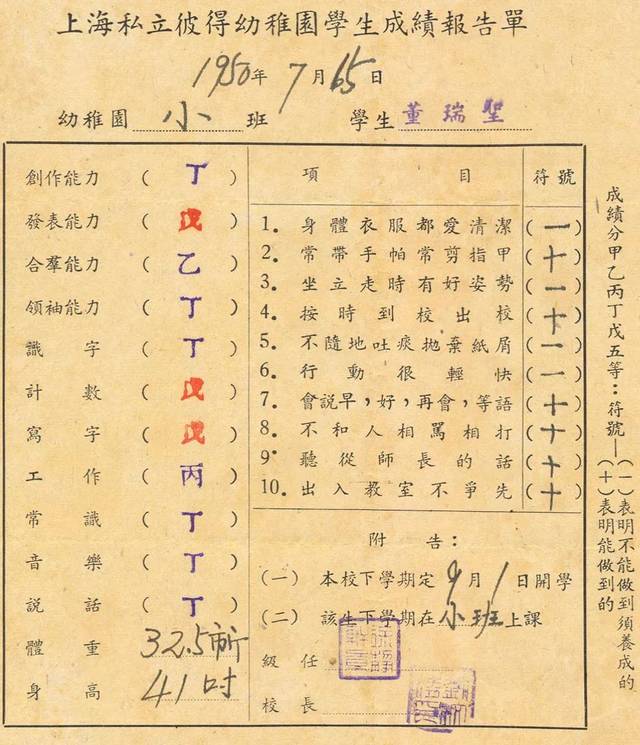 上海私立彼得幼稚園學生成績報告單
1950年7月65日
幼稚園 小 班 學生 董瑞聖
創作能力(丁)
發表能力(戊)
合羣能力(乙)
領袖能力(丁)
識字(丁)
計數(戊)
寫字(戊)
工作(丙)
常識(丁)
音樂(丁)
說話(丁)
體重 32.5斤
身高 41吋
項目 符號
1. 身體衣服都愛清潔(一)
2. 常帶手帕常剪指甲(十)
3. 坐立走時有好姿勢(一)
4. 按時到校出校(十)
5. 不隨地吐痰拋棄紙屑(一)
6. 行動很輕快(一)
7. 會説早,好,再會,等語(十)
8. 不和人相罵相打(十)
9. 聽從師長的話(十)
10. 出入教室不爭先(十)
附告:
(一) 本校下學期定9月1日開學
(二) 該生下學期在小班上課
級任
校長
成績分甲乙丙丁戊五等:符號—(一)表明不能做到須養成的
(十)表明能做到的